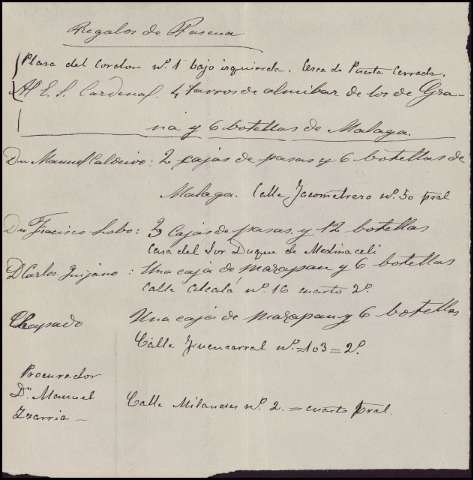 Regalos de Pascua
Plaza del cordon nº 1 bajo izquierda. Cerca de Puerta Cerrada.
Al E. S. Cardenal 4 tarros de almibar de los de Gra-
na y 6 botellas de Malaga.
Dn Manuel Caldeiro: 2 cajas de pasas y 6 botellas de
Malaga. Calle Jacometrezo nº 50 pral
Dn Francisco Lobo: 3 Cajas de pasas y 12 botellas
Casa del Sor Duque de Medinaceli
D Carlos Quijano: Una caja de mazapan y 6 botellas
Calle Alcalá nº 16 cuarto 2º
Una caja de mazapan y 6 botellas
Calle Fuencarral nº 103 = 2º.
Procurador
Dn Manuel
Calle Milaneses nº 2. = cuarto pral.